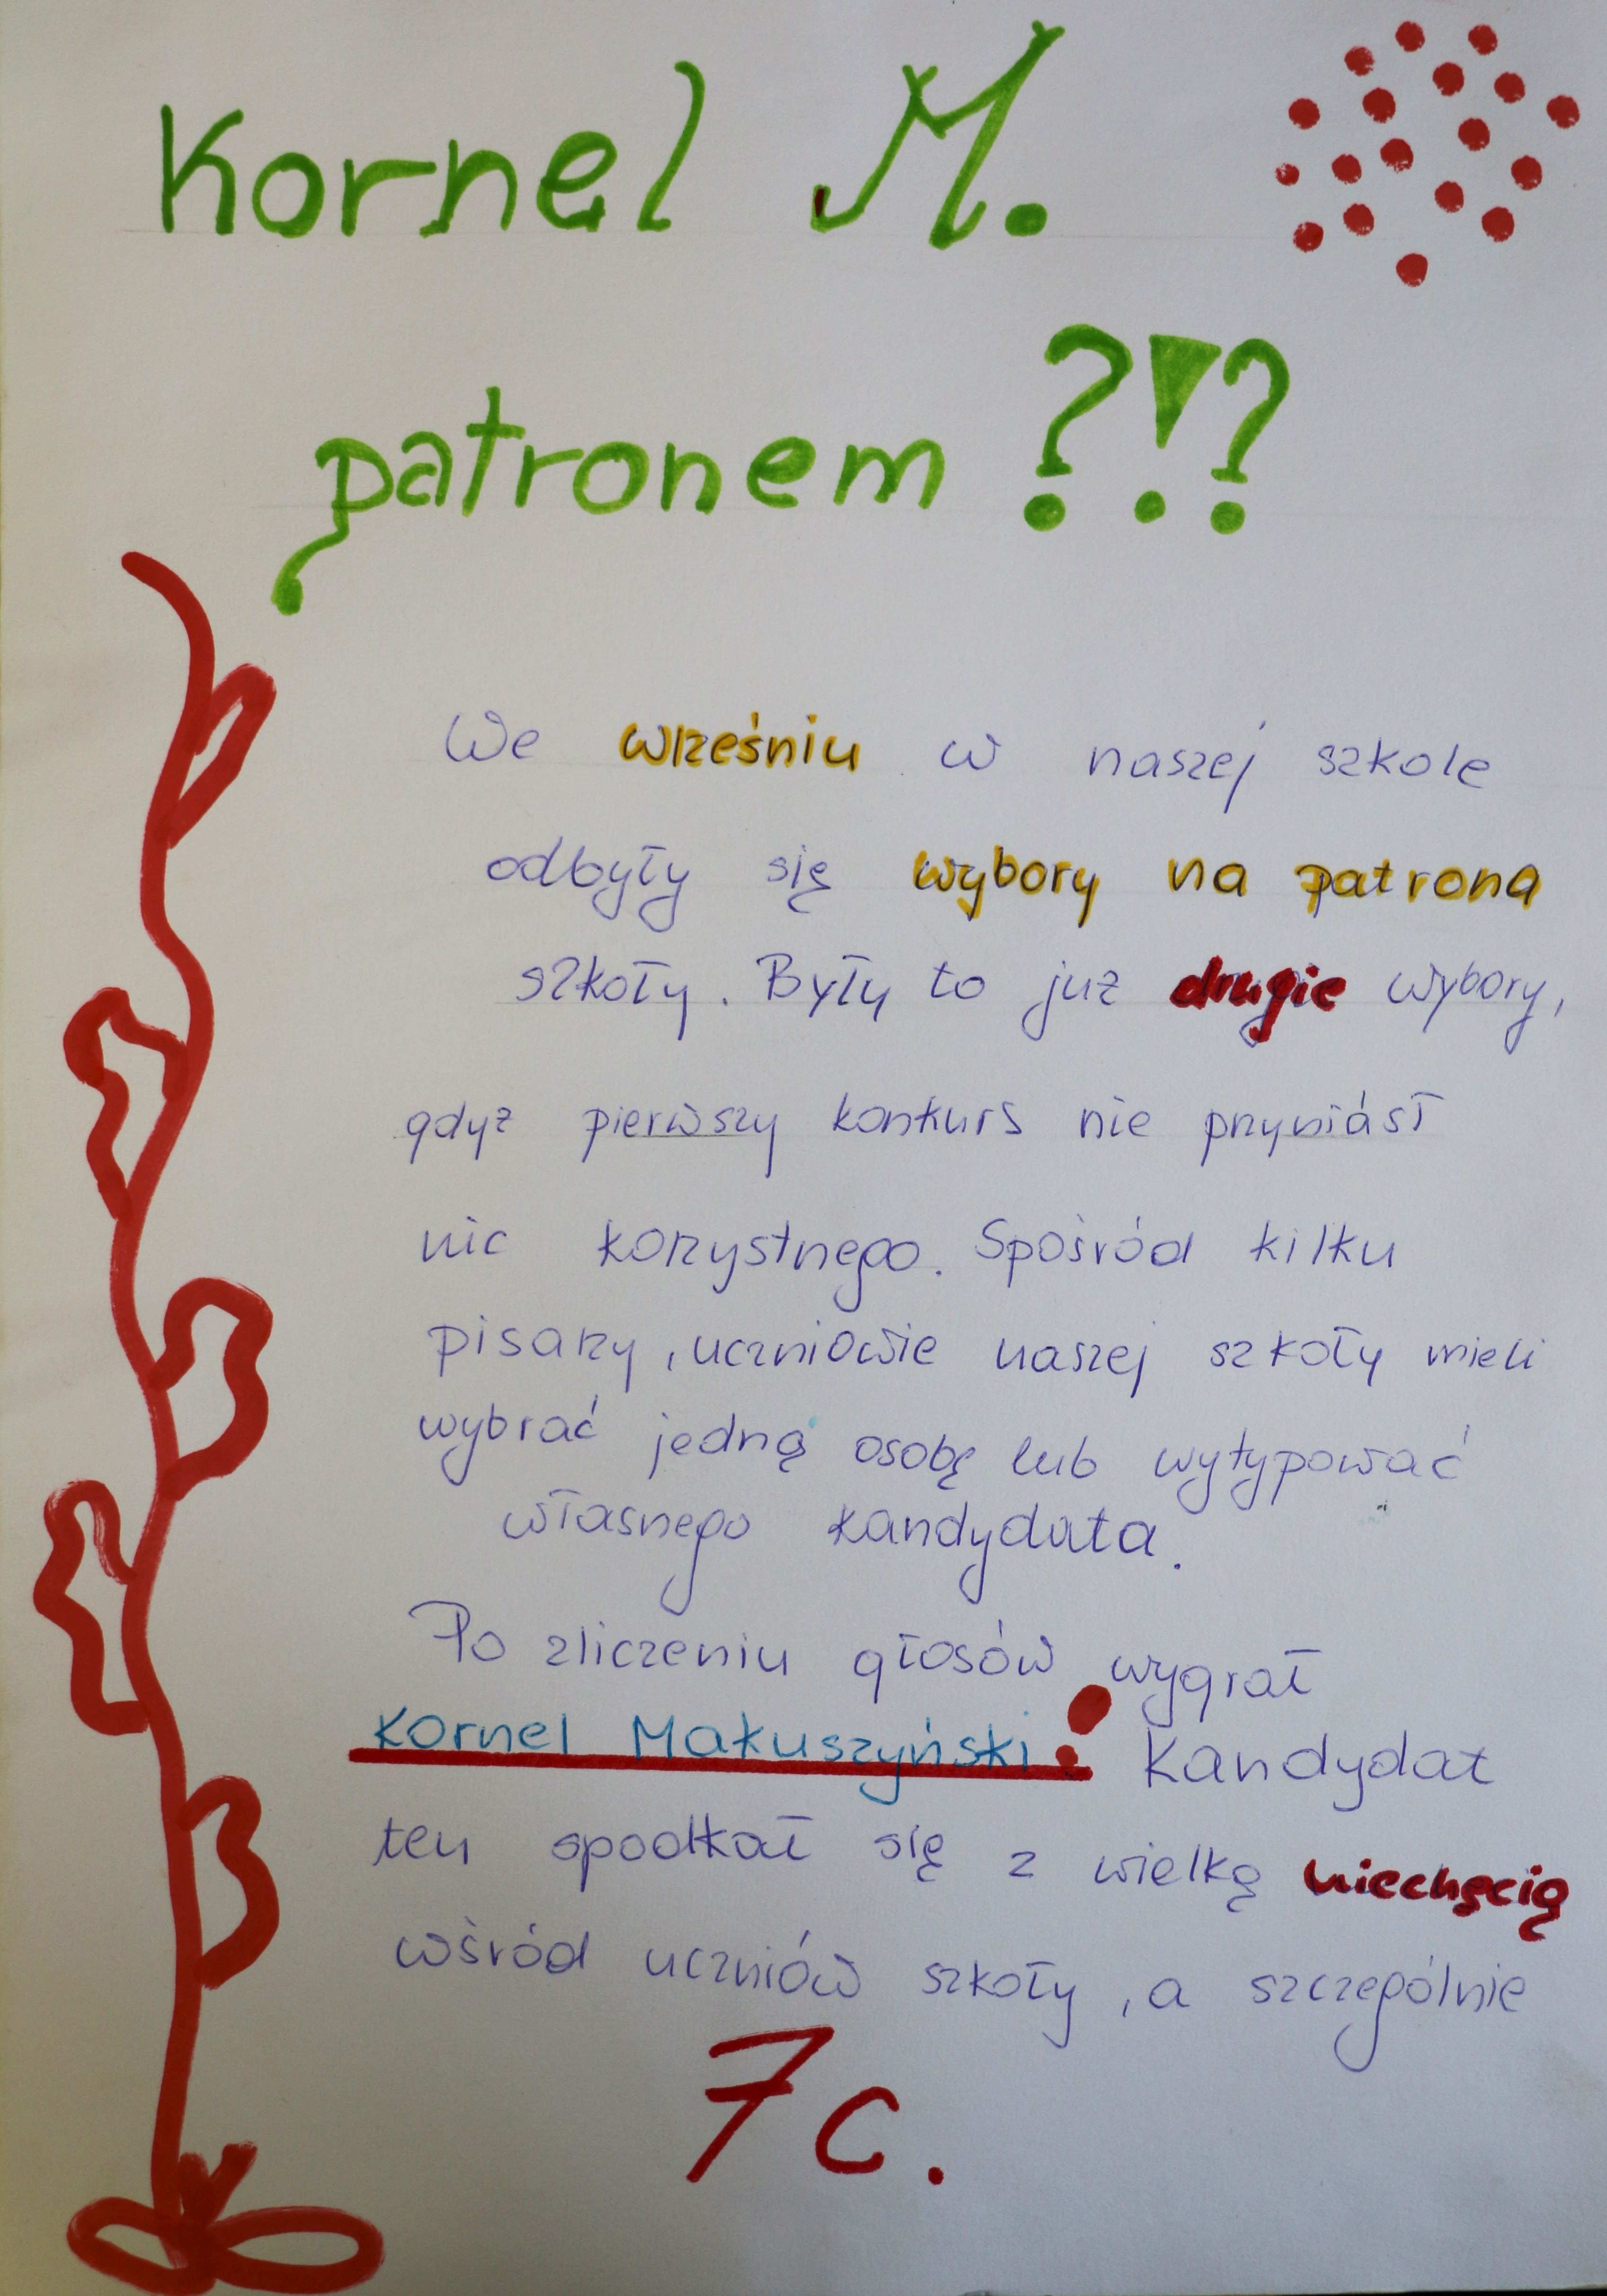 Kornel M.
patronem ?!?
We wrześniu w naszej szkole
odbyły się wybory na patrona
szkoły. Były to już drugie wybory,
gdyż pierwszy konkurs nie przyniósł
nic korzystnego. Spośród kilku
pisarzy, uczniowie naszej szkoły mieli
wybrać jedną osobę lub wytypować
własnego kandydata.
Po zliczeniu głosów wygrał
Kornel Makuszyński! Kandydat
ten spodkał się z wielką niechęcią
wśród uczniów szkoły, a szczególnie
7c.